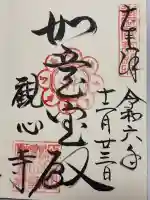 奉拝
令和六年
十一月廿三日
如意宝殿
観心寺